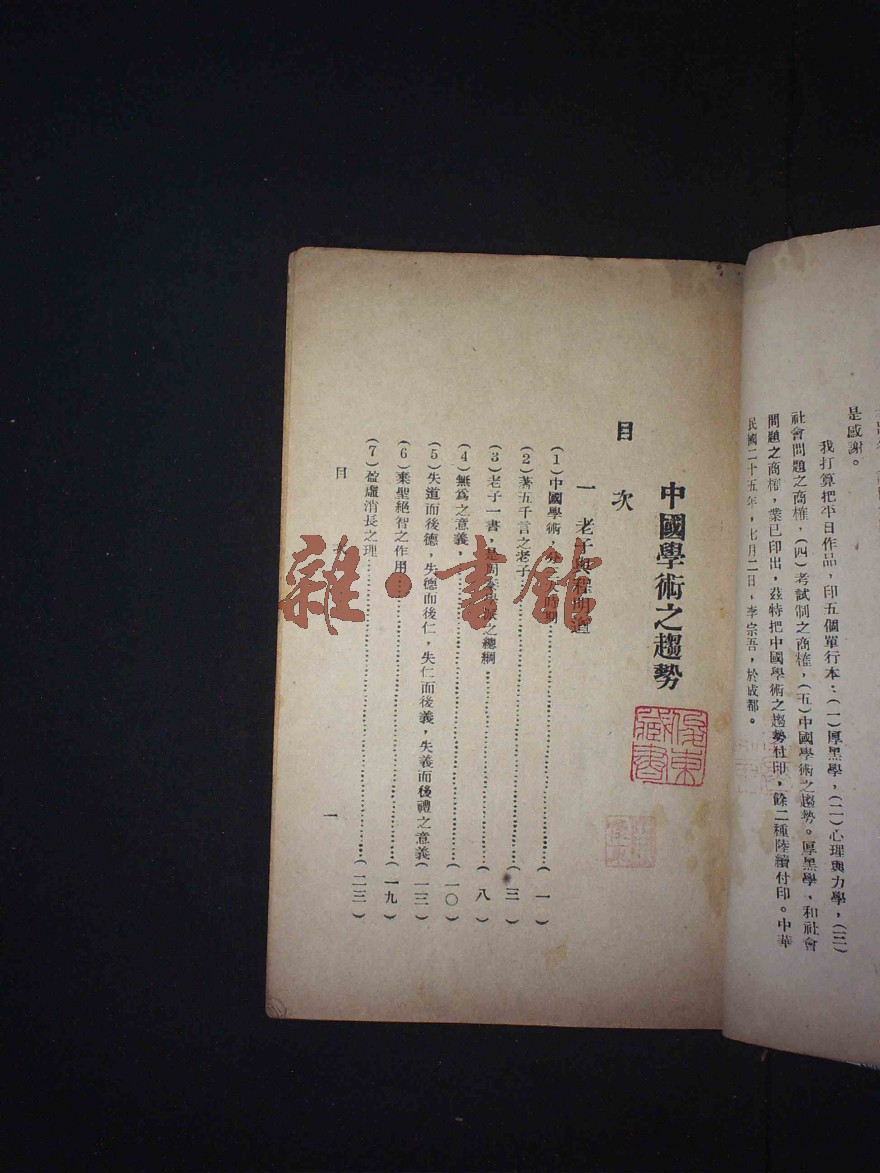 是感謝。
我打算把平日作品，印五個單行本：（一）厚黑學，（二）心理與力學，（三）
社會問題之商榷，（四）考試制之商榷，（五）中國學術之趨勢。厚黑學、和社會
問題之商榷，業已印出，茲特把中國學術之趨勢付印，餘二種陸續付印。中華
民國二十五年，七月二日，李宗吾，於成都。
中國學術之趨勢
目次
一 老子與程明道
（1）中國學術，分三大時期……（一）
（2）著五千言之老子……（三）
（3）老子一書，是周秦學派之總綱……（八）
（4）無為之意義，……（一〇）
（5）失道而後德，失德而後仁，失仁而後義，失義而後禮之意義（一三）
（6）棄聖絕智之作用……（一九）
（7）盈虛消長之理……（二三）
目 次
一
雜·書館
藏書